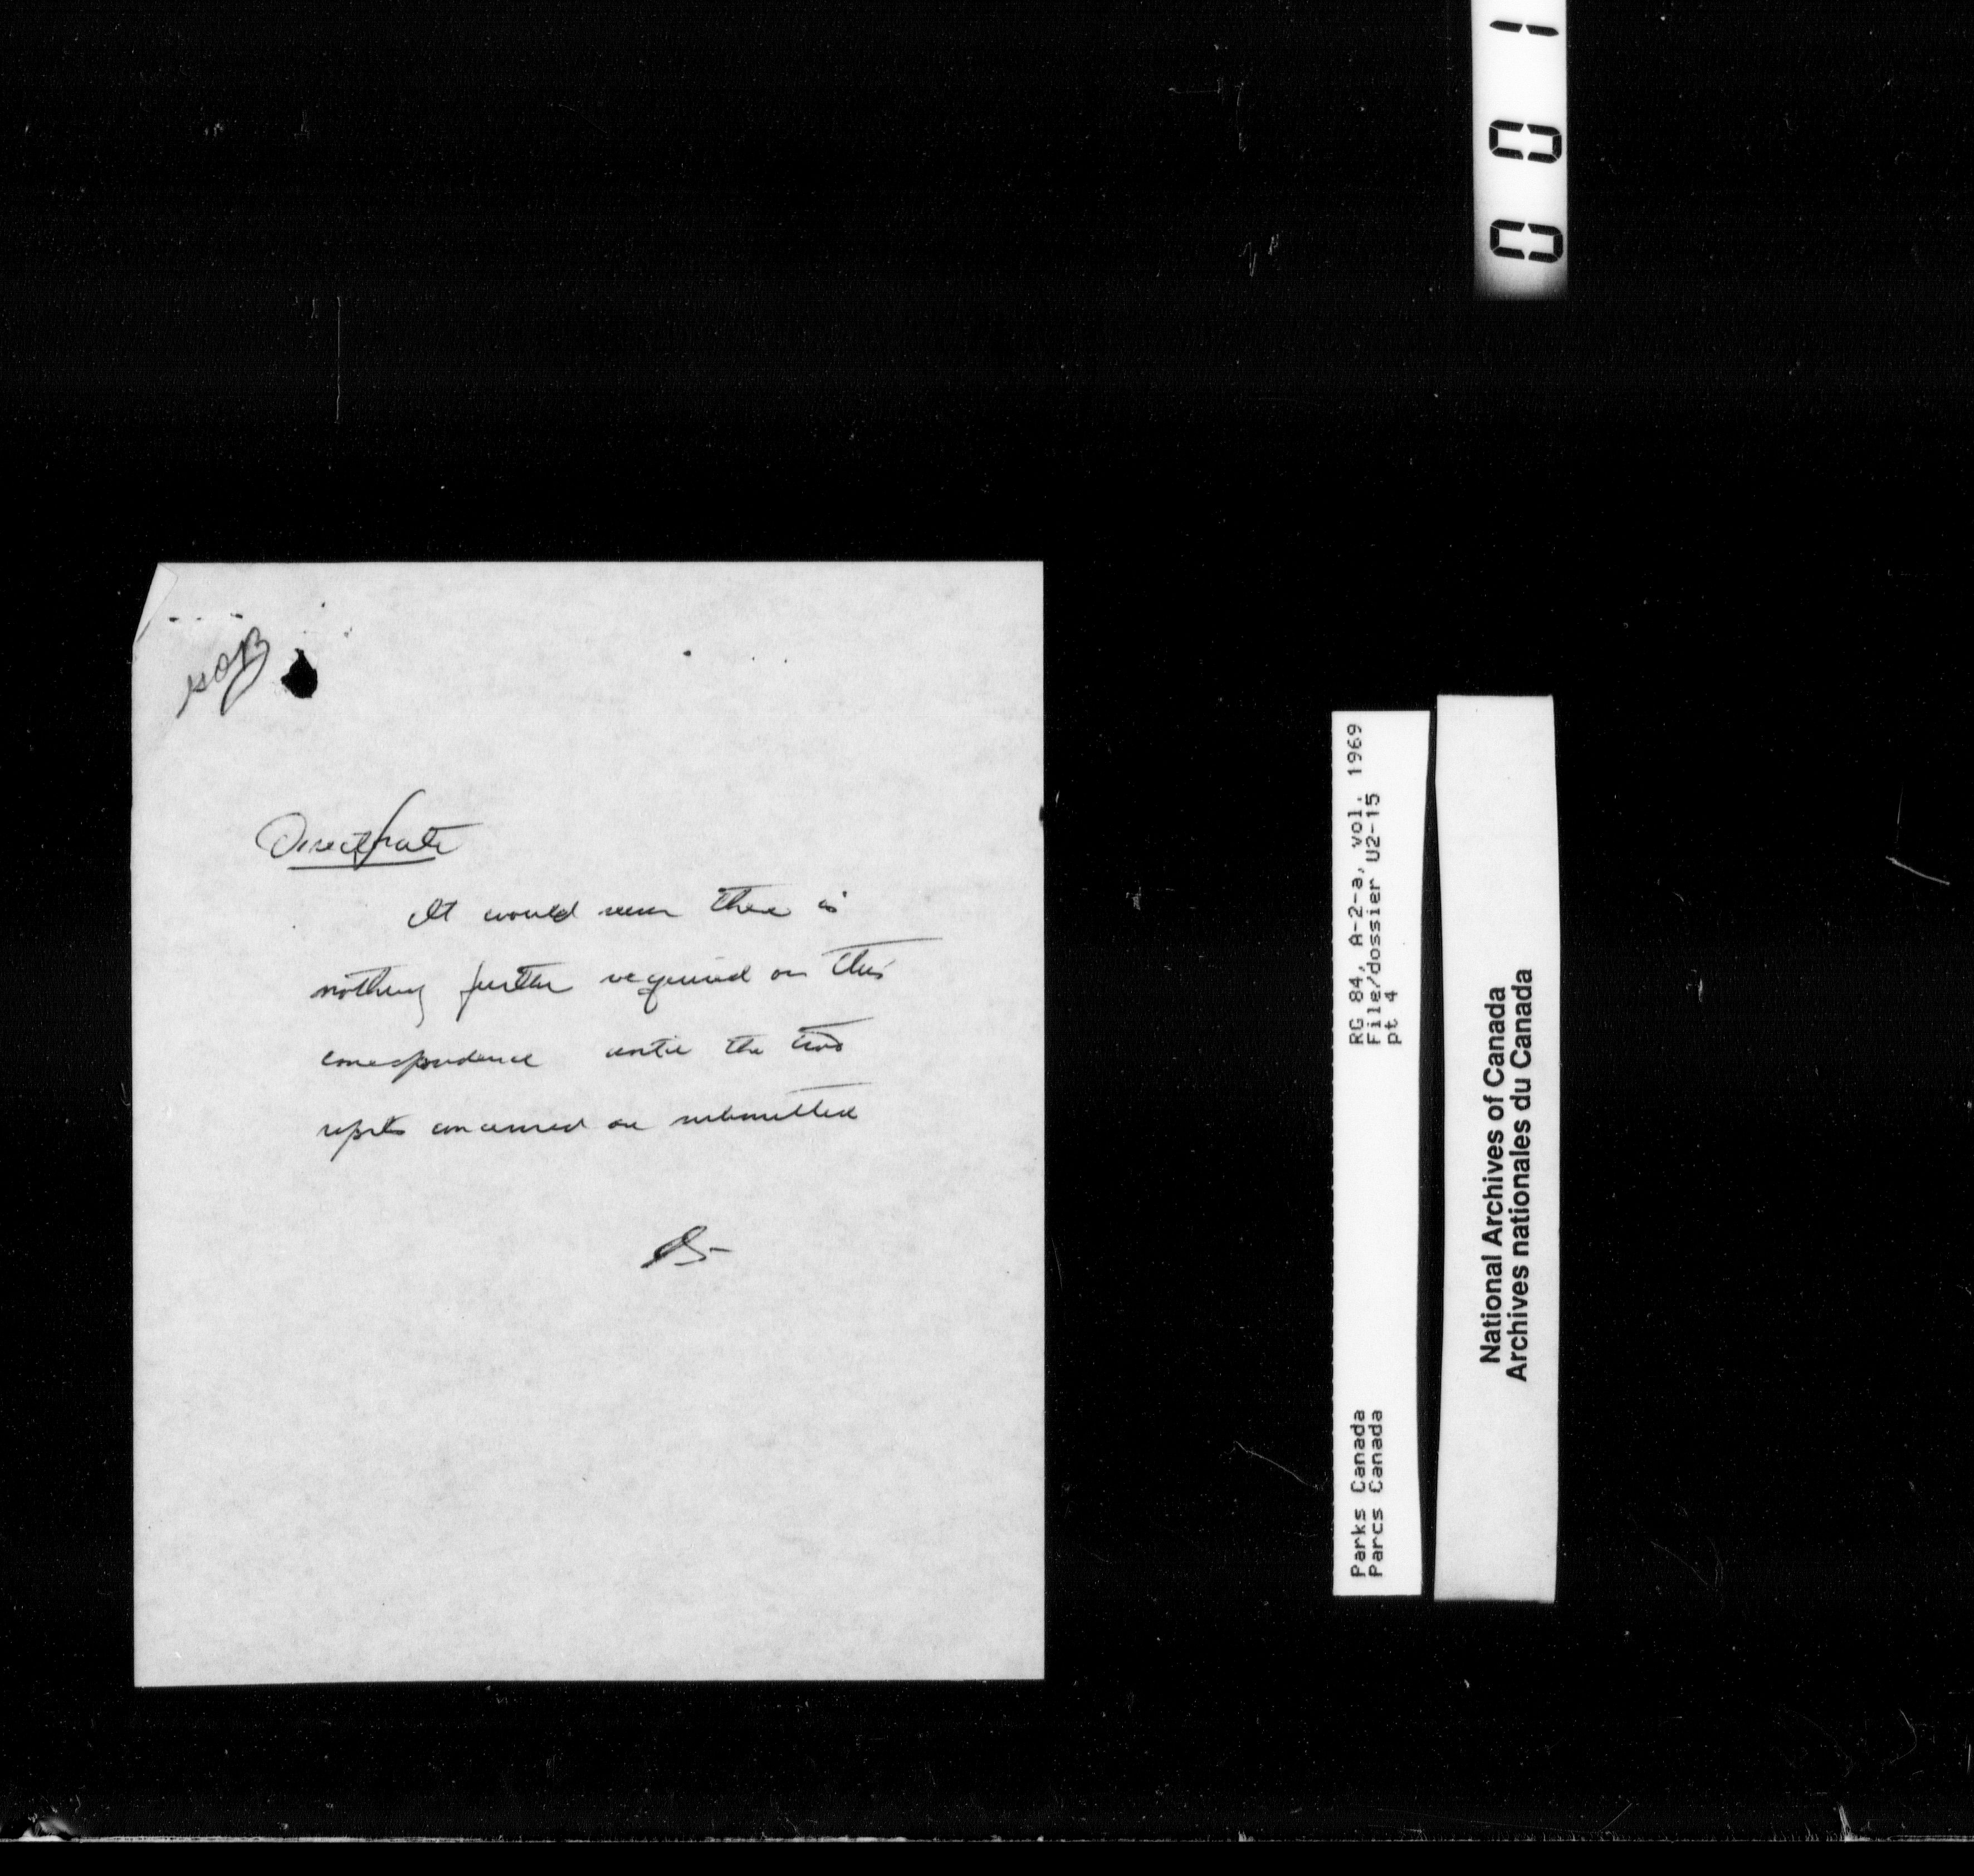 001
Directorate
It would seem there is
nothing further required on this
correspondence until the two
reports concerned are submitted
RG 84, A-2-a, vol. 1969
File/dossier U2-15
pt 4
Parks Canada
Parcs Canada
National Archives of Canada
Archives nationales du Canada